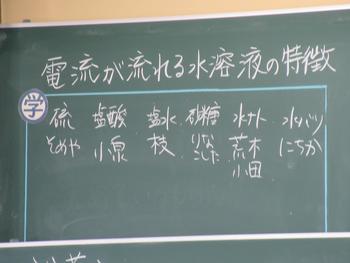 電流が流れる水溶液の特徴
学 硫 塩酸 塩水 砂糖 水ナト 水バリ
そめや 小泉 枝 りな 荒木 にちか
こした 小田